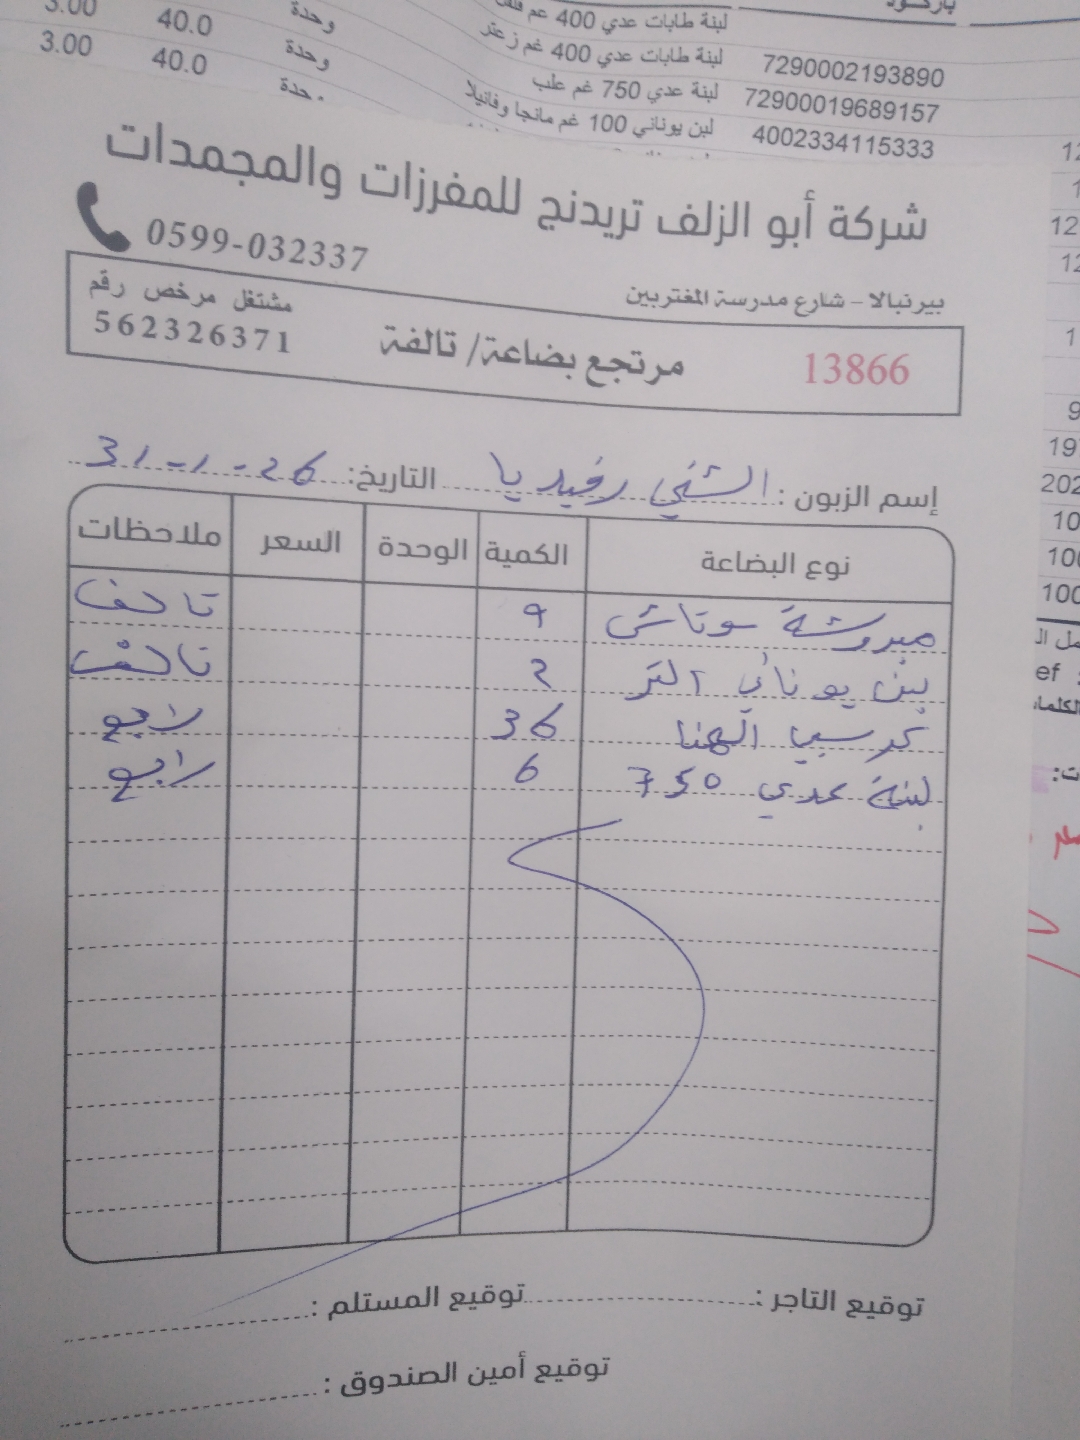 باركود
3.00 40.0 وحدة لبنة طابات عدي 400 غم
3.00 40.0 وحدة لبنة طابات عدي 400 غم زعتر 7290002193890
لبنة عدي 750 غم علب 72900019689157
لبن يوناني 100 غم مانجا وفانيلا 4002334115333
شركة أبو الزلف تريدنج للمفرزات والمجمدات
0599-032337
بيرنبالا - شارع مدرسة المغتربين
مشتغل مرخص رقم
562326371
مرتجع بضاعة/ تالفة
13866
إسم الزبون : الشني رفيديا التاريخ: 31-1-26
نوع البضاعة الكمية الوحدة السعر ملاحظات
مبروشة سوتاش 9 تالف
لبن يوناني التر 2 تالف
كرسبي الهنا 36 راجع
لبنة عدي 750 6 راجع
توقيع التاجر : توقيع المستلم :
توقيع أمين الصندوق :